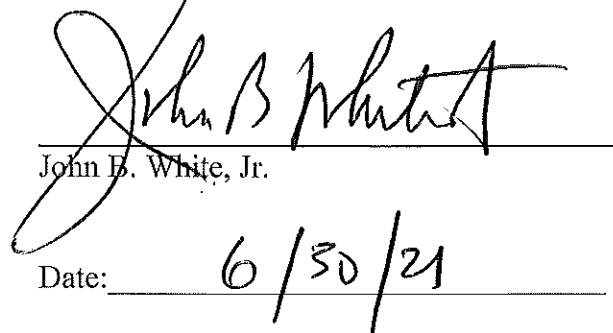 John B White Jr
John B. White, Jr.
Date: 6/30/21